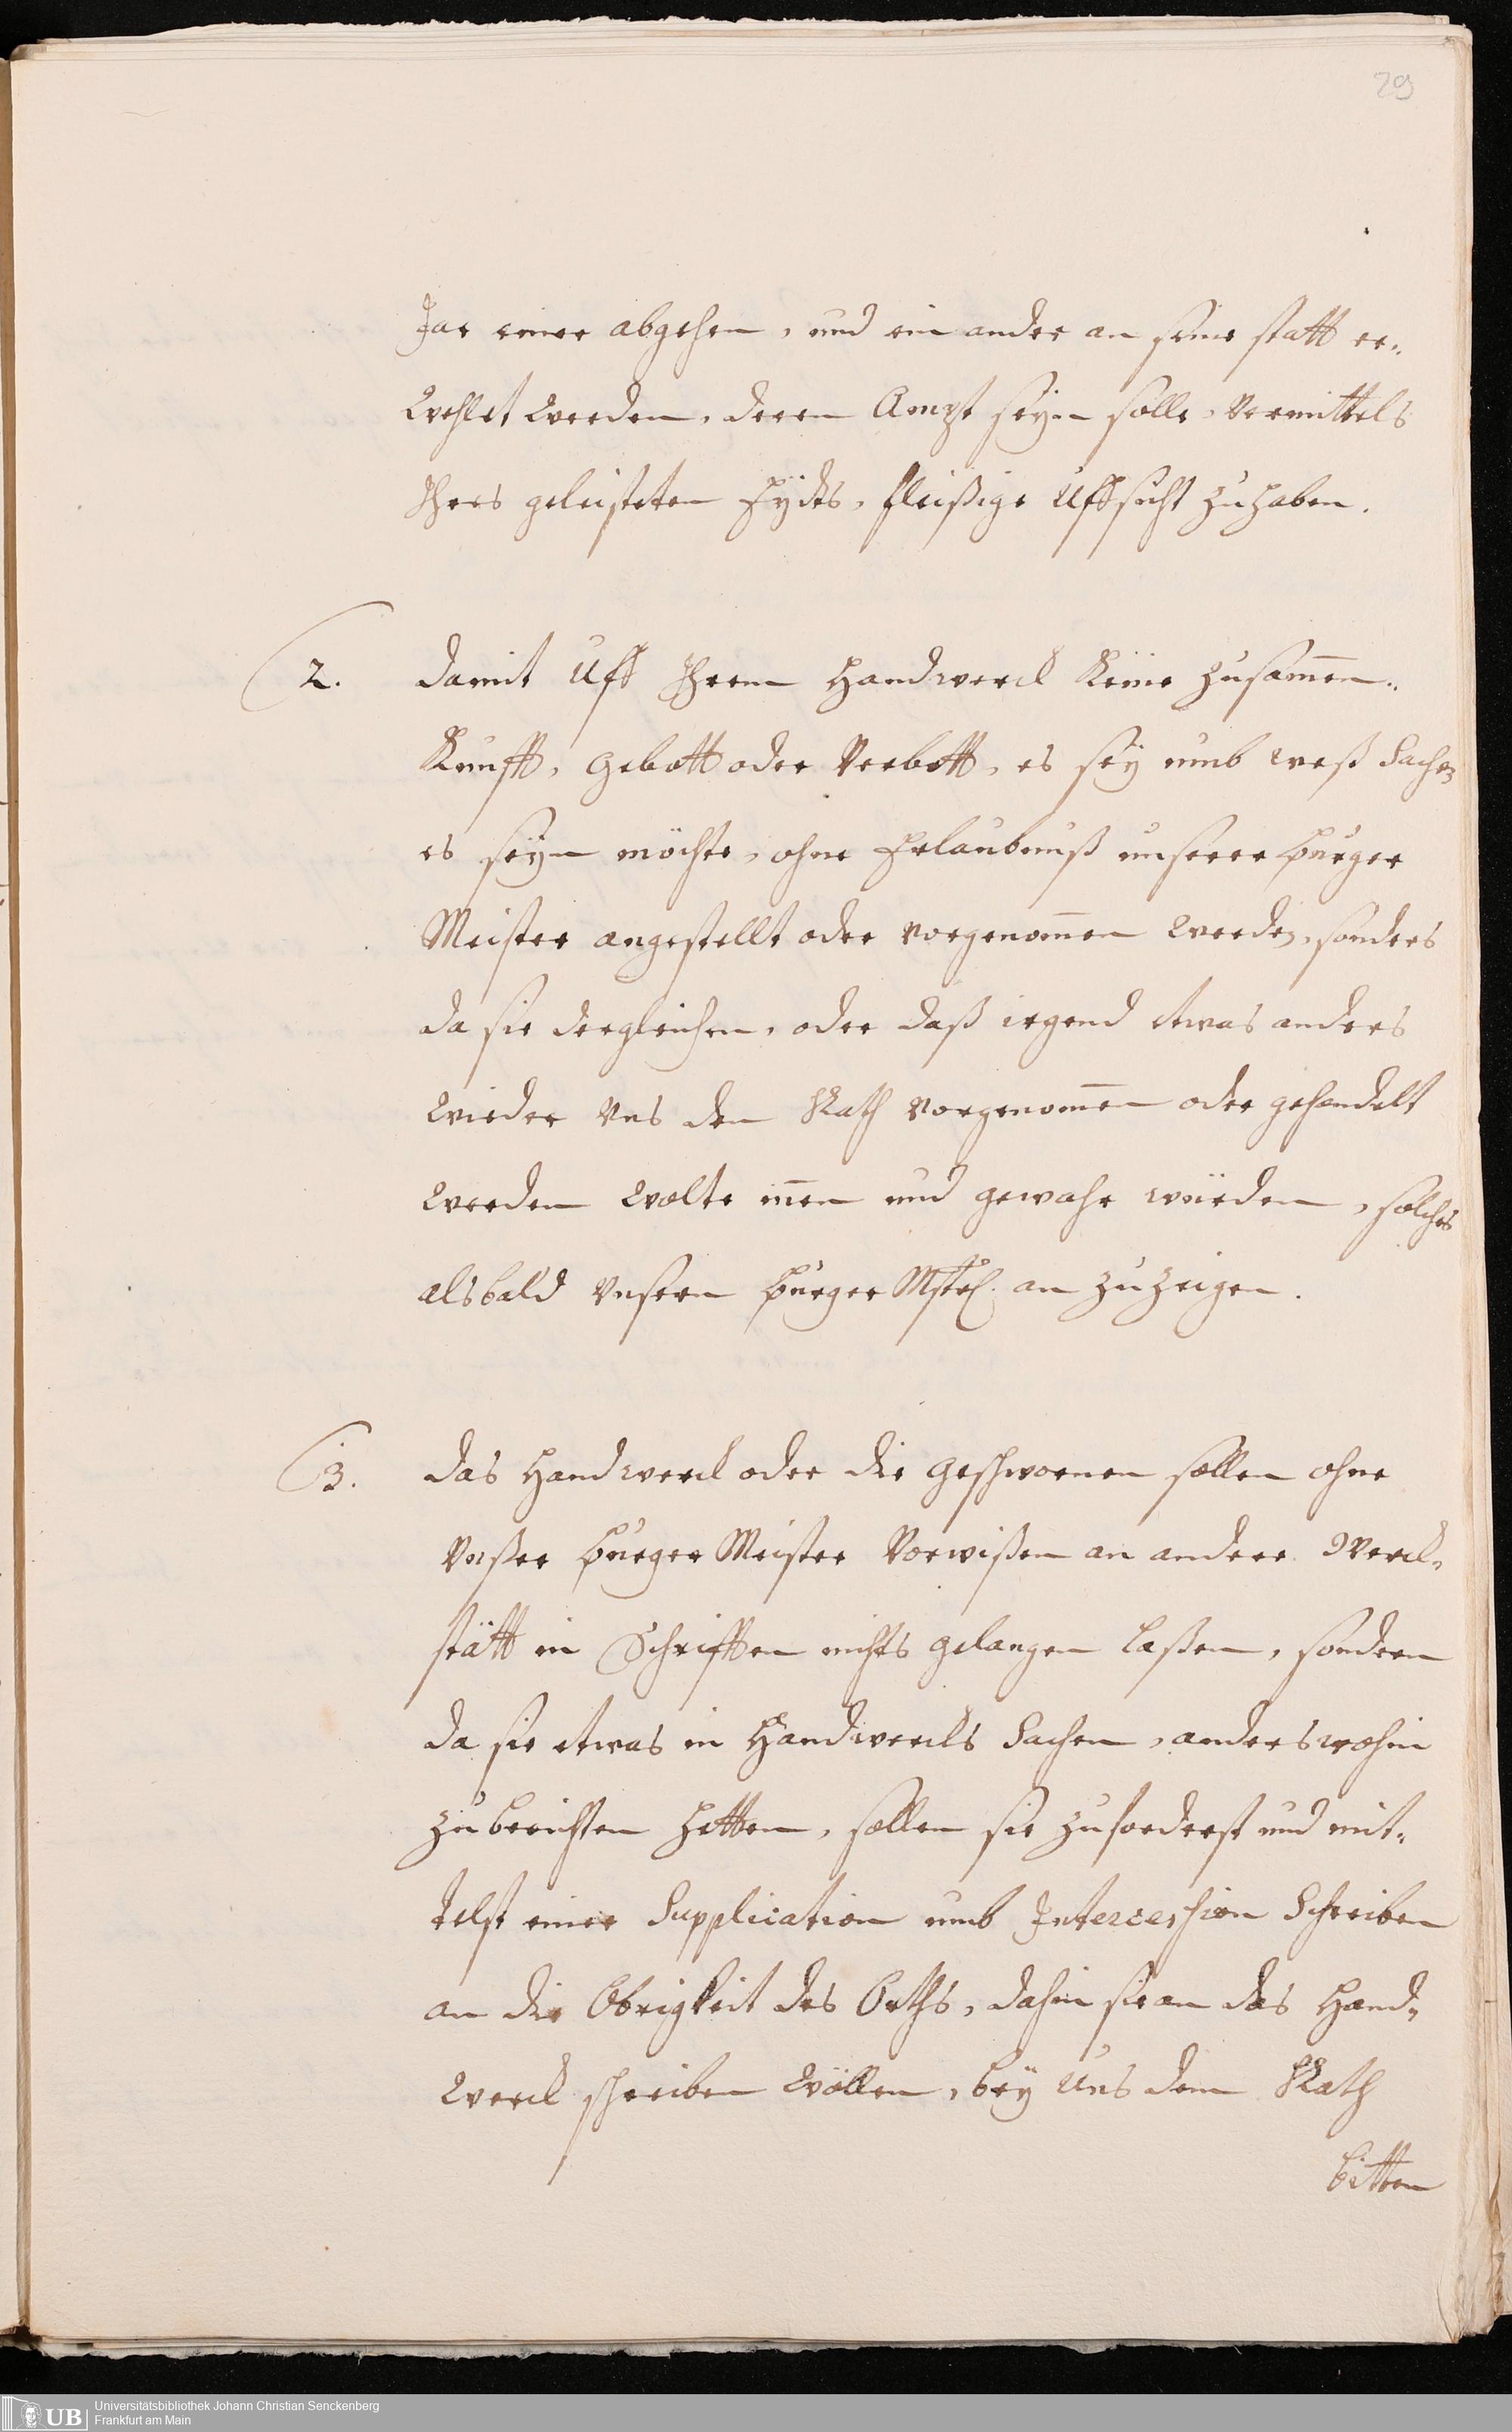 29
Jar einer abgehen, und ein ander an seine statt er¬
wehlet werden, deren Ampt seÿn solle, Vermittels
Ihres geleisteten Eÿdts, fleißige Uffsicht zuhaben.
2. Damit Uff Ihrem Handwerck Keine zusam̄en¬
Kunfft, Gebott oder Verbott, es seÿ umb weß Sachen
es seÿn möchte, ohne Erlaubnuß unserer Burger
Meister angestellt oder vorgenom̄en werden, sonders
da sie dergleichen, oder daß irgend etwas anders
wieder Uns den Rath vorgenom̄en oder gehandelt
werden wolte innen und gewahr würden, solches
alsbald Unsern Burger Mstr. an zuzeigen.
3. Das Handwerck oder die Geschwornen sollen ohne
Unßer Burger Meister Vorwißen an andere Werck¬
stätt in Schrifften nichts gelangen laßen, sondern
da sie etwas in Handwercks Sachen, anderswohin
zuberichten hetten, sollen sie zuforderst und mit¬
telst einer Supplication umb Intercession Schreiben
an die Obrigkeit des Orths, dahin sie an das Hand¬
werck schreiben wöllen, beÿ Uns dem Rath
bitten
UB Universitätsbibliothek Johann Christian Senckenberg
Frankfurt am Main